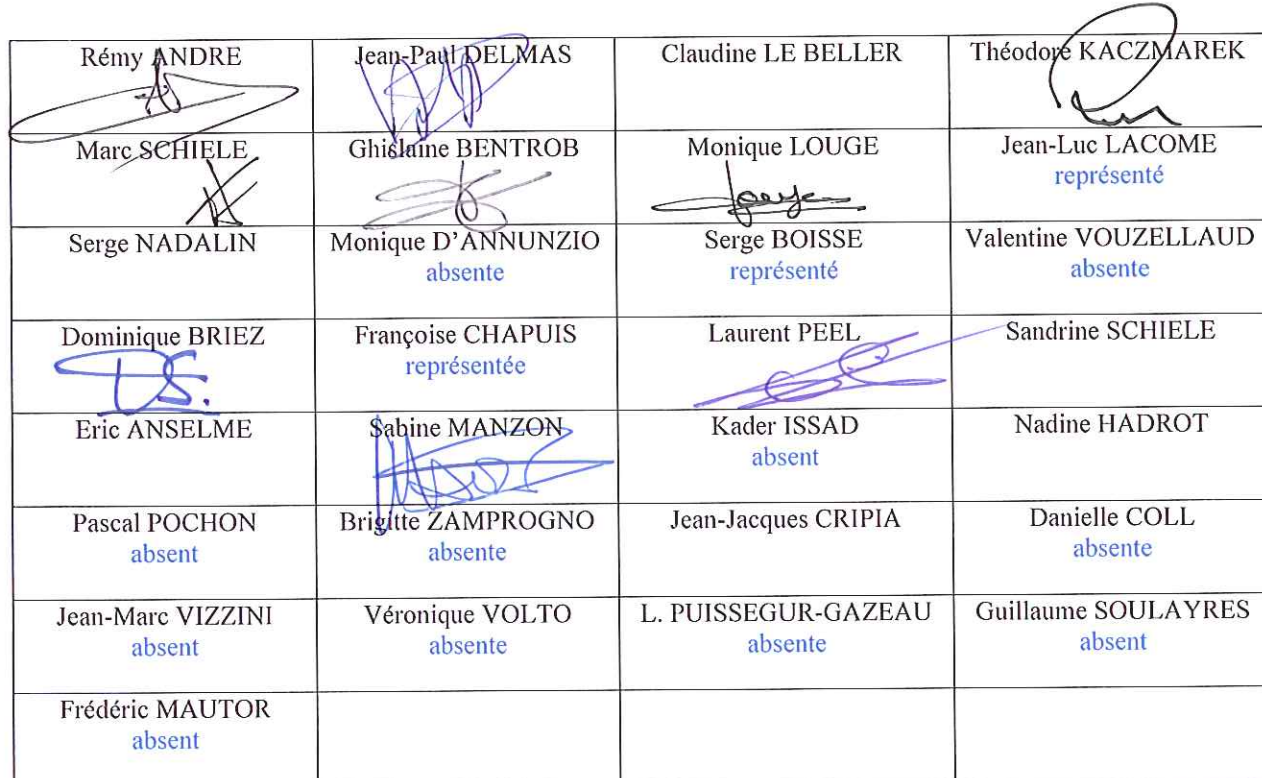 Rémy ANDRE
Jean-Paul DELMAS
Claudine LE BELLER
Théodore KACZMAREK
Marc SCHIELE
Ghislaine BENTROB
Monique LOUGE
Jean-Luc LACOME
représenté
Serge NADALIN
Monique D'ANNUNZIO
absente
Serge BOISSE
représenté
Valentine VOUZELLAUD
absente
Dominique BRIEZ
Françoise CHAPUIS
représentée
Laurent PEEL
Sandrine SCHIELE
Eric ANSELME
Sabine MANZON
Kader ISSAD
absent
Nadine HADROT
Pascal POCHON
absent
Brigitte ZAMPROGNO
absente
Jean-Jacques CRIPIA
Danielle COLL
absente
Jean-Marc VIZZINI
absent
Véronique VOLTO
absente
L. PUISSEGUR-GAZEAU
absente
Guillaume SOULAYRES
absent
Frédéric MAUTOR
absent